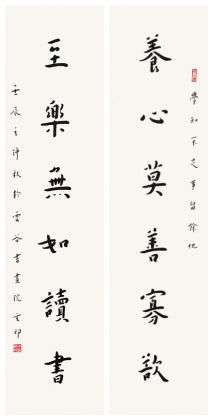 學知不足 事留餘地
養心莫善寡欲
至樂無如讀書
壬辰之仲秋於雲谷書畫院 印